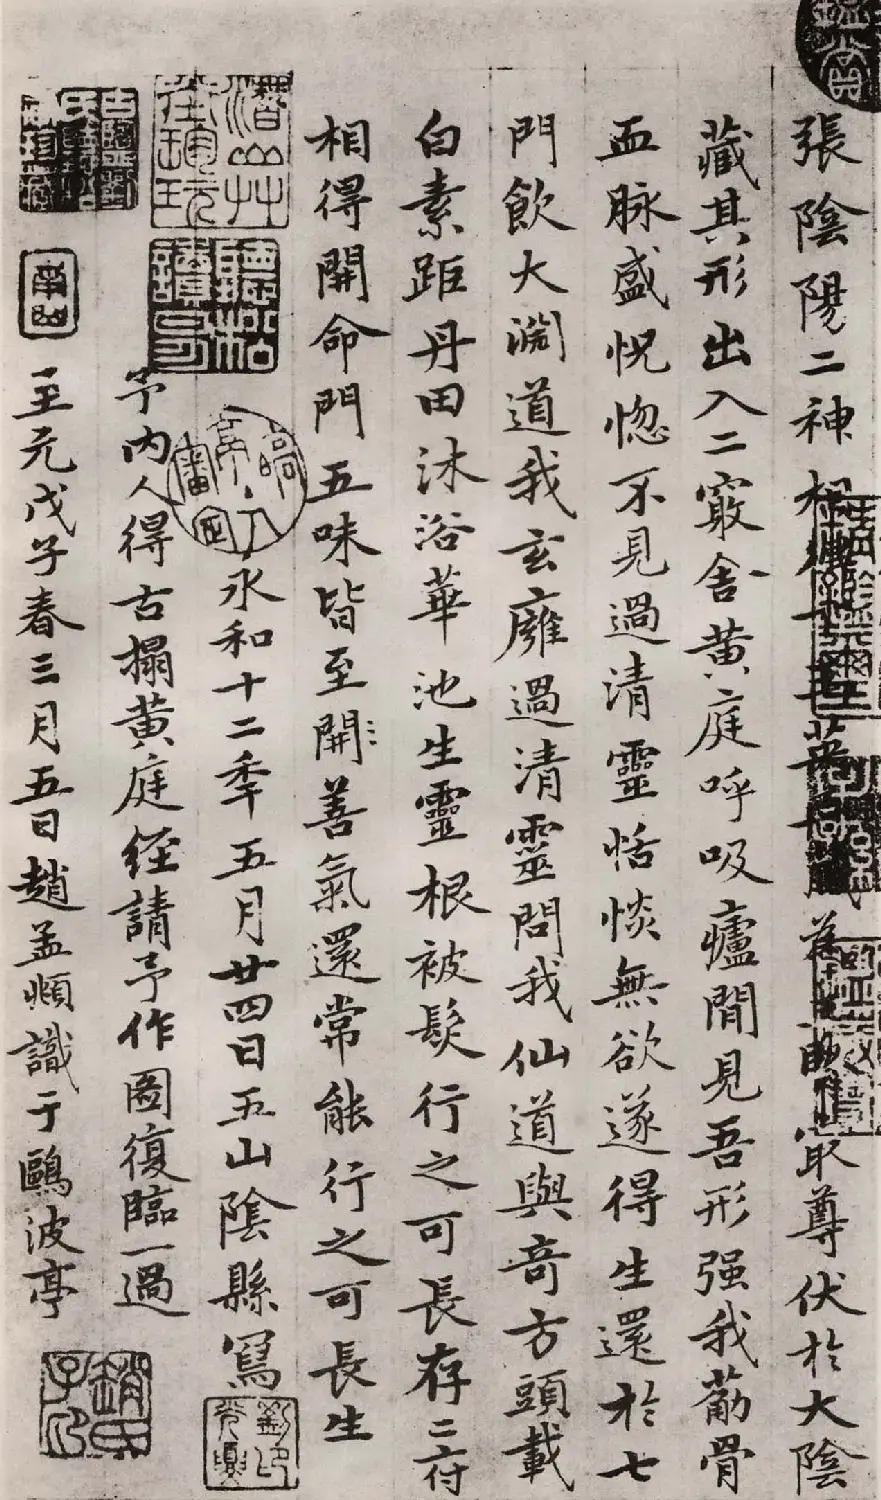 張陰陽二神相 最尊伏於大陰
藏其形出入二竅舍黄庭呼吸廬間見吾形强我葋骨
血脉盛怳惚不見過清靈恬惔無欲遂得生還於七
門飲大渊道我玄廱過清靈問我仙道與奇方頭載
白素距丹田沐浴華池生靈根被髮行之可長存二府
相得開命門五味皆至開善氣還常能行之可長生
永和十二季五月廿四日五山陰縣寫
予内人得古搨黄庭經請予作圖復臨一過
至元戊子春三月五日趙孟頫識于鷗波亭
趙氏子印